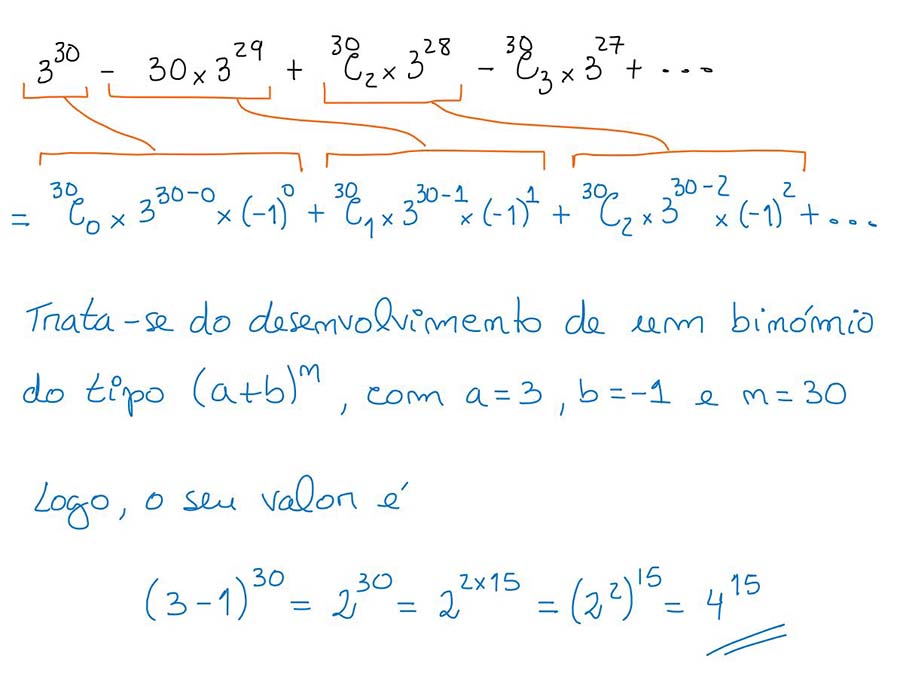 3³⁰ - 30 × 3²⁹ + ³⁰C₂ × 3²⁸ - ³⁰C₃ × 3²⁷ + ...
= ³⁰C₀ × 3³⁰⁻⁰ × (-1)⁰ + ³⁰C₁ × 3³⁰⁻¹ × (-1)¹ + ³⁰C₂ × 3³⁰⁻² × (-1)² + ...
Trata-se do desenvolvimento de um binómio
do tipo (a+b)ⁿ, com a = 3, b = -1 e n = 30
Logo, o seu valor é
(3 - 1)³⁰ = 2³⁰ = 2²ˣ¹⁵ = (2²)¹⁵ = 4¹⁵